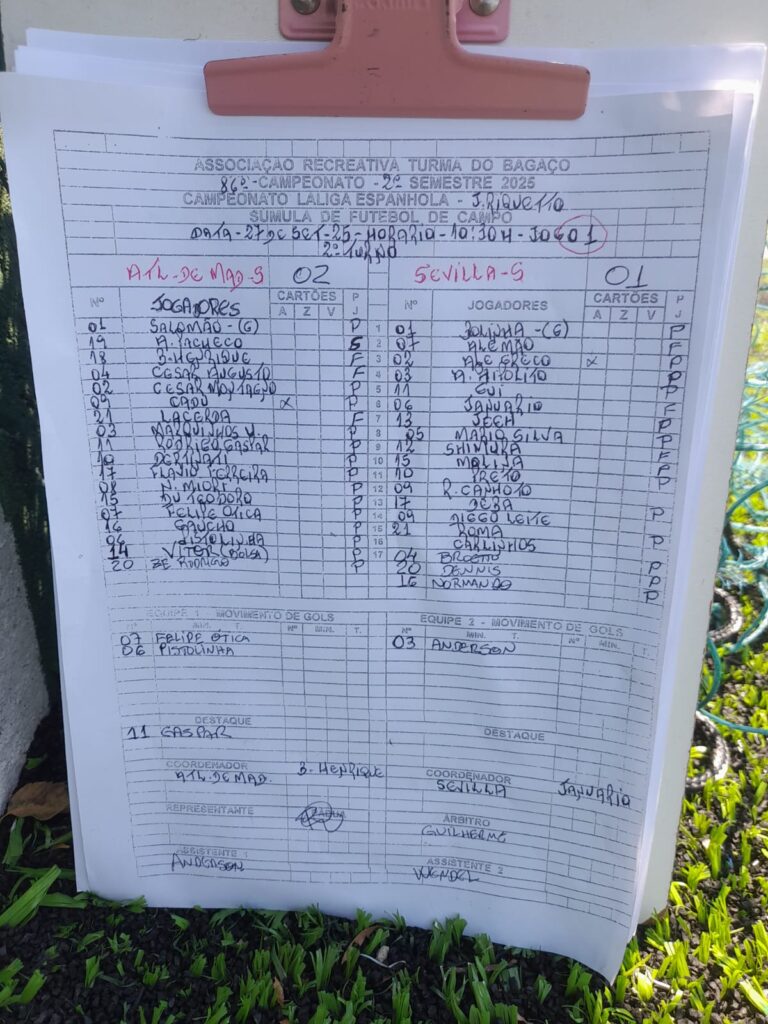 ASSOCIAÇÃO RECREATIVA TURMA DO BAGAÇO
86º-CAMPEONATO - 2º SEMESTRE 2025
CAMPEONATO LALIGA ESPANHOLA - J. RIQUETTO
SÚMULA DE FUTEBOL DE CAMPO
DATA-27 DE SET-25-HORARIO-10:30H-JOGO 1
2º TURNO
ATL-DE MAD-S 02 SEVILLA-S 01
Nº JOGADORES CARTÕES P Nº JOGADORES CARTÕES P
A Z V J A Z V J
01 SALOMÃO-(G) P 1 01 JOLINHA-(G) P
19 A. PACHECO S 2 07 ALEMÃO F
18 B. HENRIQUE F 3 02 ALE GRECO X P
04 CESAR AUGUSTO F 4 03 P
02 CESAR P 5 11 GUI P
09 CADU X P 6 06 JANUARIO F
21 LACERDA F 7 13 P
03 MARQUINHOS V. P 8 05 MARIO SILVA P
11 RODRIGO GASPAR P 9 12 SHIMURA F
10 P 10 15 MOLINA F
17 FLAVIO FERREIRA P 11 10 PRETO P
08 N. MIORI P 12 09 R. CANHOTO
15 DU TEODORO P 13 17 P
07 FELIPE OTICA P 14 09 DIEGO LEITE
16 GAUCHO P 15 21 ROMA P
06 PISTOLINHA P 16 CARLINHOS
14 VITOR (BOLSA) P 17 04 P
20 ZE RODRIGO P 20 DENNIS P
16 NORMANDO P
EQUIPE 1 - MOVIMENTO DE GOLS EQUIPE 2 - MOVIMENTO DE GOLS
Nº MIN. T. Nº MIN. T. Nº MIN. T. Nº MIN. T.
07 FELIPE OTICA 03 ANDERSON
06 PISTOLINHA
DESTAQUE DESTAQUE
11 GASPAR
COORDENADOR B. HENRIQUE COORDENADOR JANUARIO
ATL. DE MAD. SEVILLA
REPRESENTANTE ARBITRO
GUILHERME
ASSISTENTE 1 ASSISTENTE 2
ANDERSON WENDEL